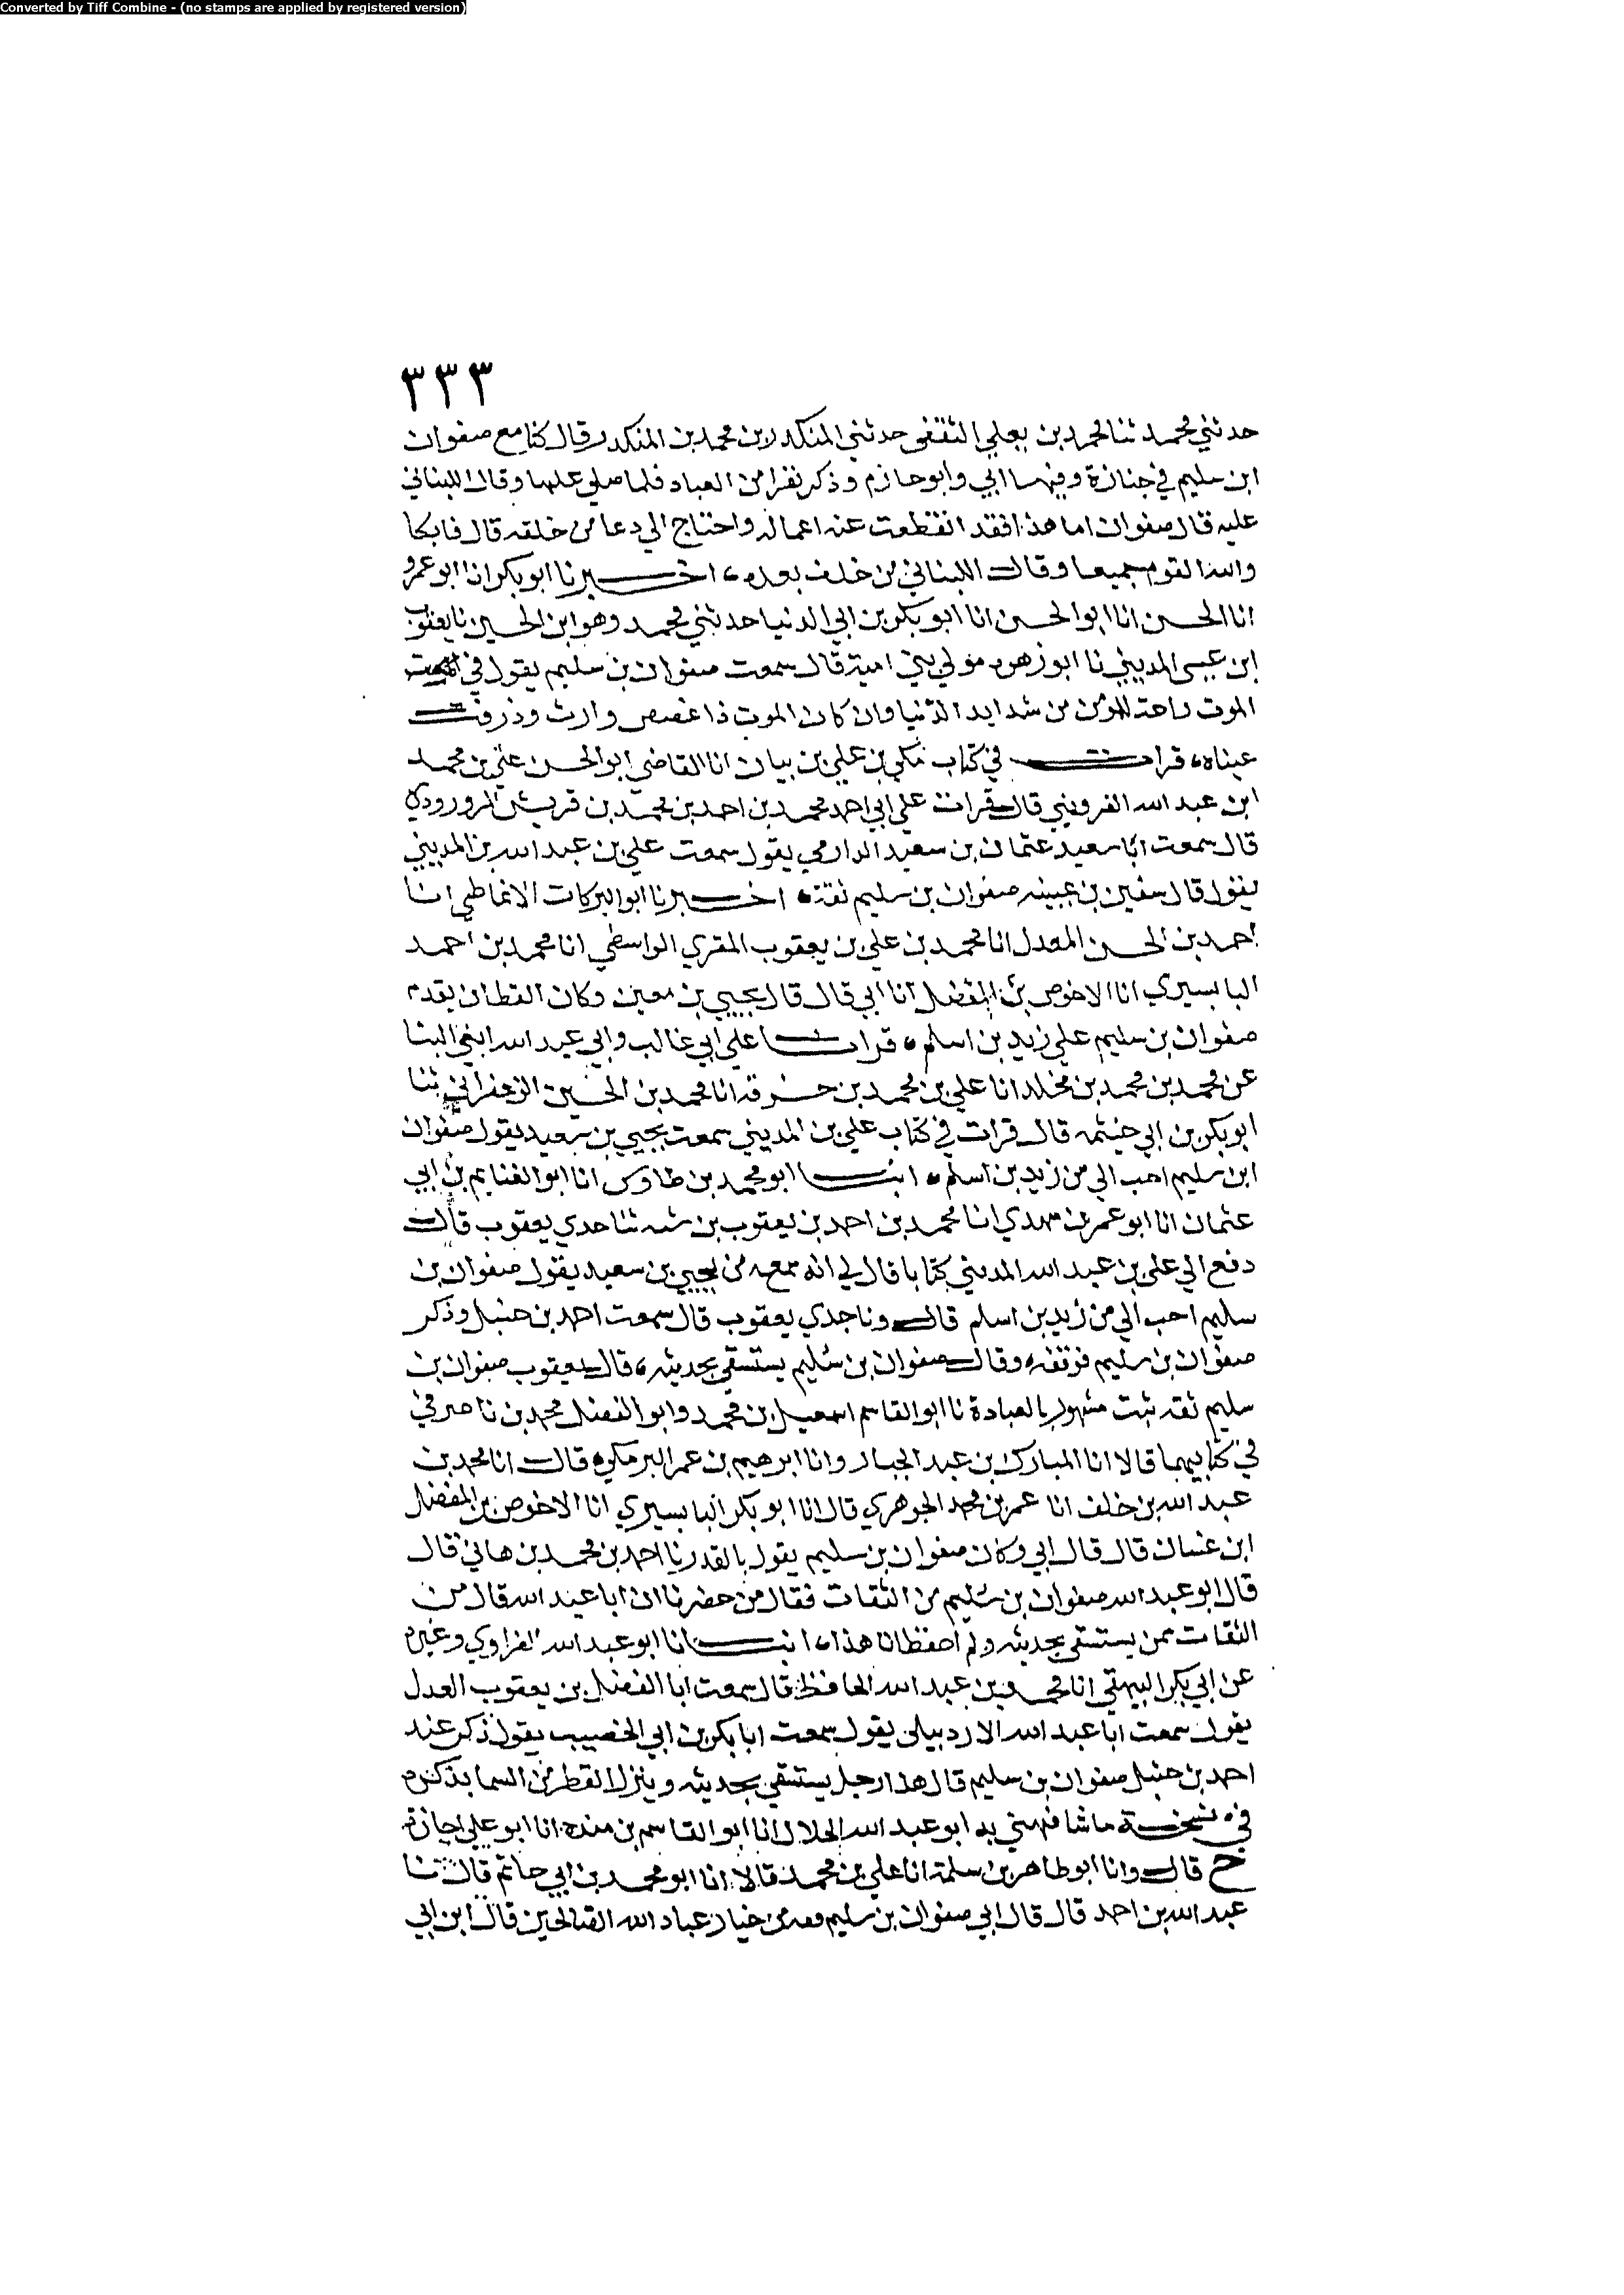 Converted by Tiff Combine - (no stamps are applied by registered version)
٣٣٣
حدثني محمد ثنا محمد بن يعلي الثقفي حدثني المنكدر بن محمد بن المنكدر قال كنا مع صفوان
ابن سليم في جنازة وفيها ابي وابو حازم وذكر نفرا من العباد فلما صلي عليها وقال اللبناني
عليه قال صفوان اما هذا فقد انقطعت عنه اعماله واحتاج الي دعا من خلفه قال فابكا
والله القوم جميعا وقال اللبناني من خلف بعده اخبرنا ابو بكر انا ابو عمرو
انا الحسن انا ابو الحسن انا ابو بكر بن ابي الدنيا حدثني محمد وهو ابن الحسين نا يعقوب
ابن عيسى المديني نا ابو زهره مولي بني امية قال سمعت صفوان بن سليم يقول في
الموت راحة للمؤمن من شدايد الدنيا وان كان الموت ذا غصص وارث وذرفت
عيناه قرات في كتاب مكي بن علي بن بيان انا القاضي ابو الحسن علي بن محمد
ابن عبد الله القزويني قال قرات علي ابي احمد محمد بن احمد بن محمد بن قريش المرورودي
قال سمعت ابا سعيد عثمان بن سعيد الدارمي يقول سمعت علي بن عبد الله بن المديني
يقول قال سفين بن عيينه صفوان بن سليم ثقة اخبرنا ابو البركات الانماطي انا
احمد بن الحسن المعدل انا محمد بن علي بن يعقوب المقري الواسطي انا محمد بن احمد
البابسيري انا الاخوص بن المفضل انا ابي قال قال يحيي بن معين وكان القطان يقدم
صفوان بن سليم علي زيد بن اسلم قرات علي ابي غالب وابي عبد الله ابني البنا
عن محمد بن محمد بن مخلد انا علي بن محمد بن خزفه انا محمد بن الحسين الزعفراني ثنا
ابو بكر بن ابي خيثمه قال قرات في كتاب علي بن المديني سمعت يحيي بن سعيد يقول صفوان
ابن سليم احب الي من زيد بن اسلم انبانا ابو محمد بن طاوس انا ابو الغنايم بن ابي
عثمان انا ابو عمر بن مهدي انا محمد بن احمد بن يعقوب بن شيبه ثنا جدي يعقوب قال
دفع الي علي بن عبد الله المديني كتابا قال لي انه سمعه من يحيي بن سعيد يقول صفوان بن
سليم احب الي من زيد بن اسلم قال ونا جدي يعقوب قال سمعت احمد بن حنبل وذكر
صفوان بن سليم فوثقه وقال صفوان بن سليم يستسقي بحديثه قال يعقوب صفوان بن
سليم ثقه ثبت مشهور بالعبادة نا ابو القاسم اسمعيل بن محمد وابو الفضل محمد بن ناصر في
في كتابيهما قالا انا المبارك بن عبد الجبار وانا ابرهيم بن عمر البرمكي قال انا محمد بن
عبد الله بن خلف انا عمر بن محمد الجوهري قال انا ابو بكر البابسيري انا الاخوص بن المفضل
ابن غسان قال قال ابي وكان صفوان بن سليم يقول بالقدر نا احمد بن محمد بن هاني قال
قال ابو عبد الله صفوان بن سليم من الثقات فقال من حضرنا ان ابا عبد الله قال من
الثقات ممن يستسقي بحديثه ولم احفظ انا هذا انبانا ابو عبد الله الفراوي وغيره
عن ابي بكر البيهقي انا محمد بن عبد الله الحافظ قال سمعت ابا الفضل بن يعقوب العدل
يقول سمعت ابا عبد الله الاردبيلي يقول سمعت ابا بكر بن ابي الخصيب يقول ذكر عند
احمد بن حنبل صفوان بن سليم قال هذا رجل يستسقي بحديثه وينزل القطر من السما بذكره
في نسخة ما شافهني به ابو عبد الله الخلال انا ابو القاسم بن منده انا ابو علي اجازة
ح قال وانا ابو طاهر بن سلمة انا علي بن محمد قالا انا ابو محمد بن ابي حاتم قال ثنا
عبد الله بن احمد قال قال ابي صفوان بن سليم من خيار عباد الله الصالحين قال ابن ابي